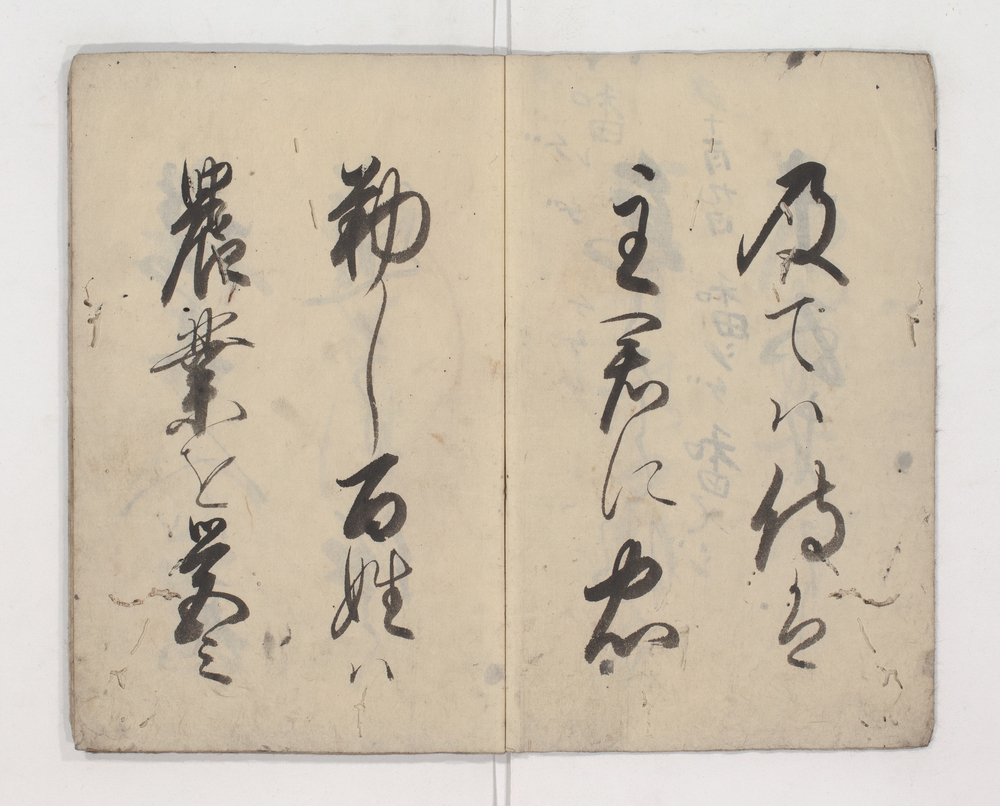 及てハ侍は
主君に忠
勤し百姓ハ
農業を営ミ